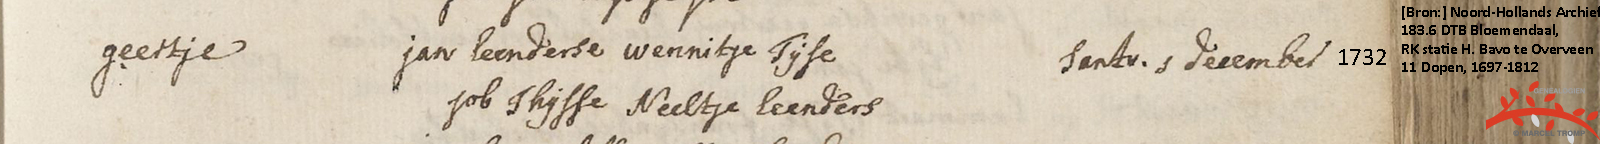 geertje jan leenderse wennitje Tijse Santv. 5 december 1732
job Thijsse Neeltje leenders
[Bron:] Noord-Hollands Archief
183.6 DTB Bloemendaal,
RK statie H. Bavo te Overveen
11 Dopen, 1697-1812
GENEALOGIEËN
©MARCEL TROMP